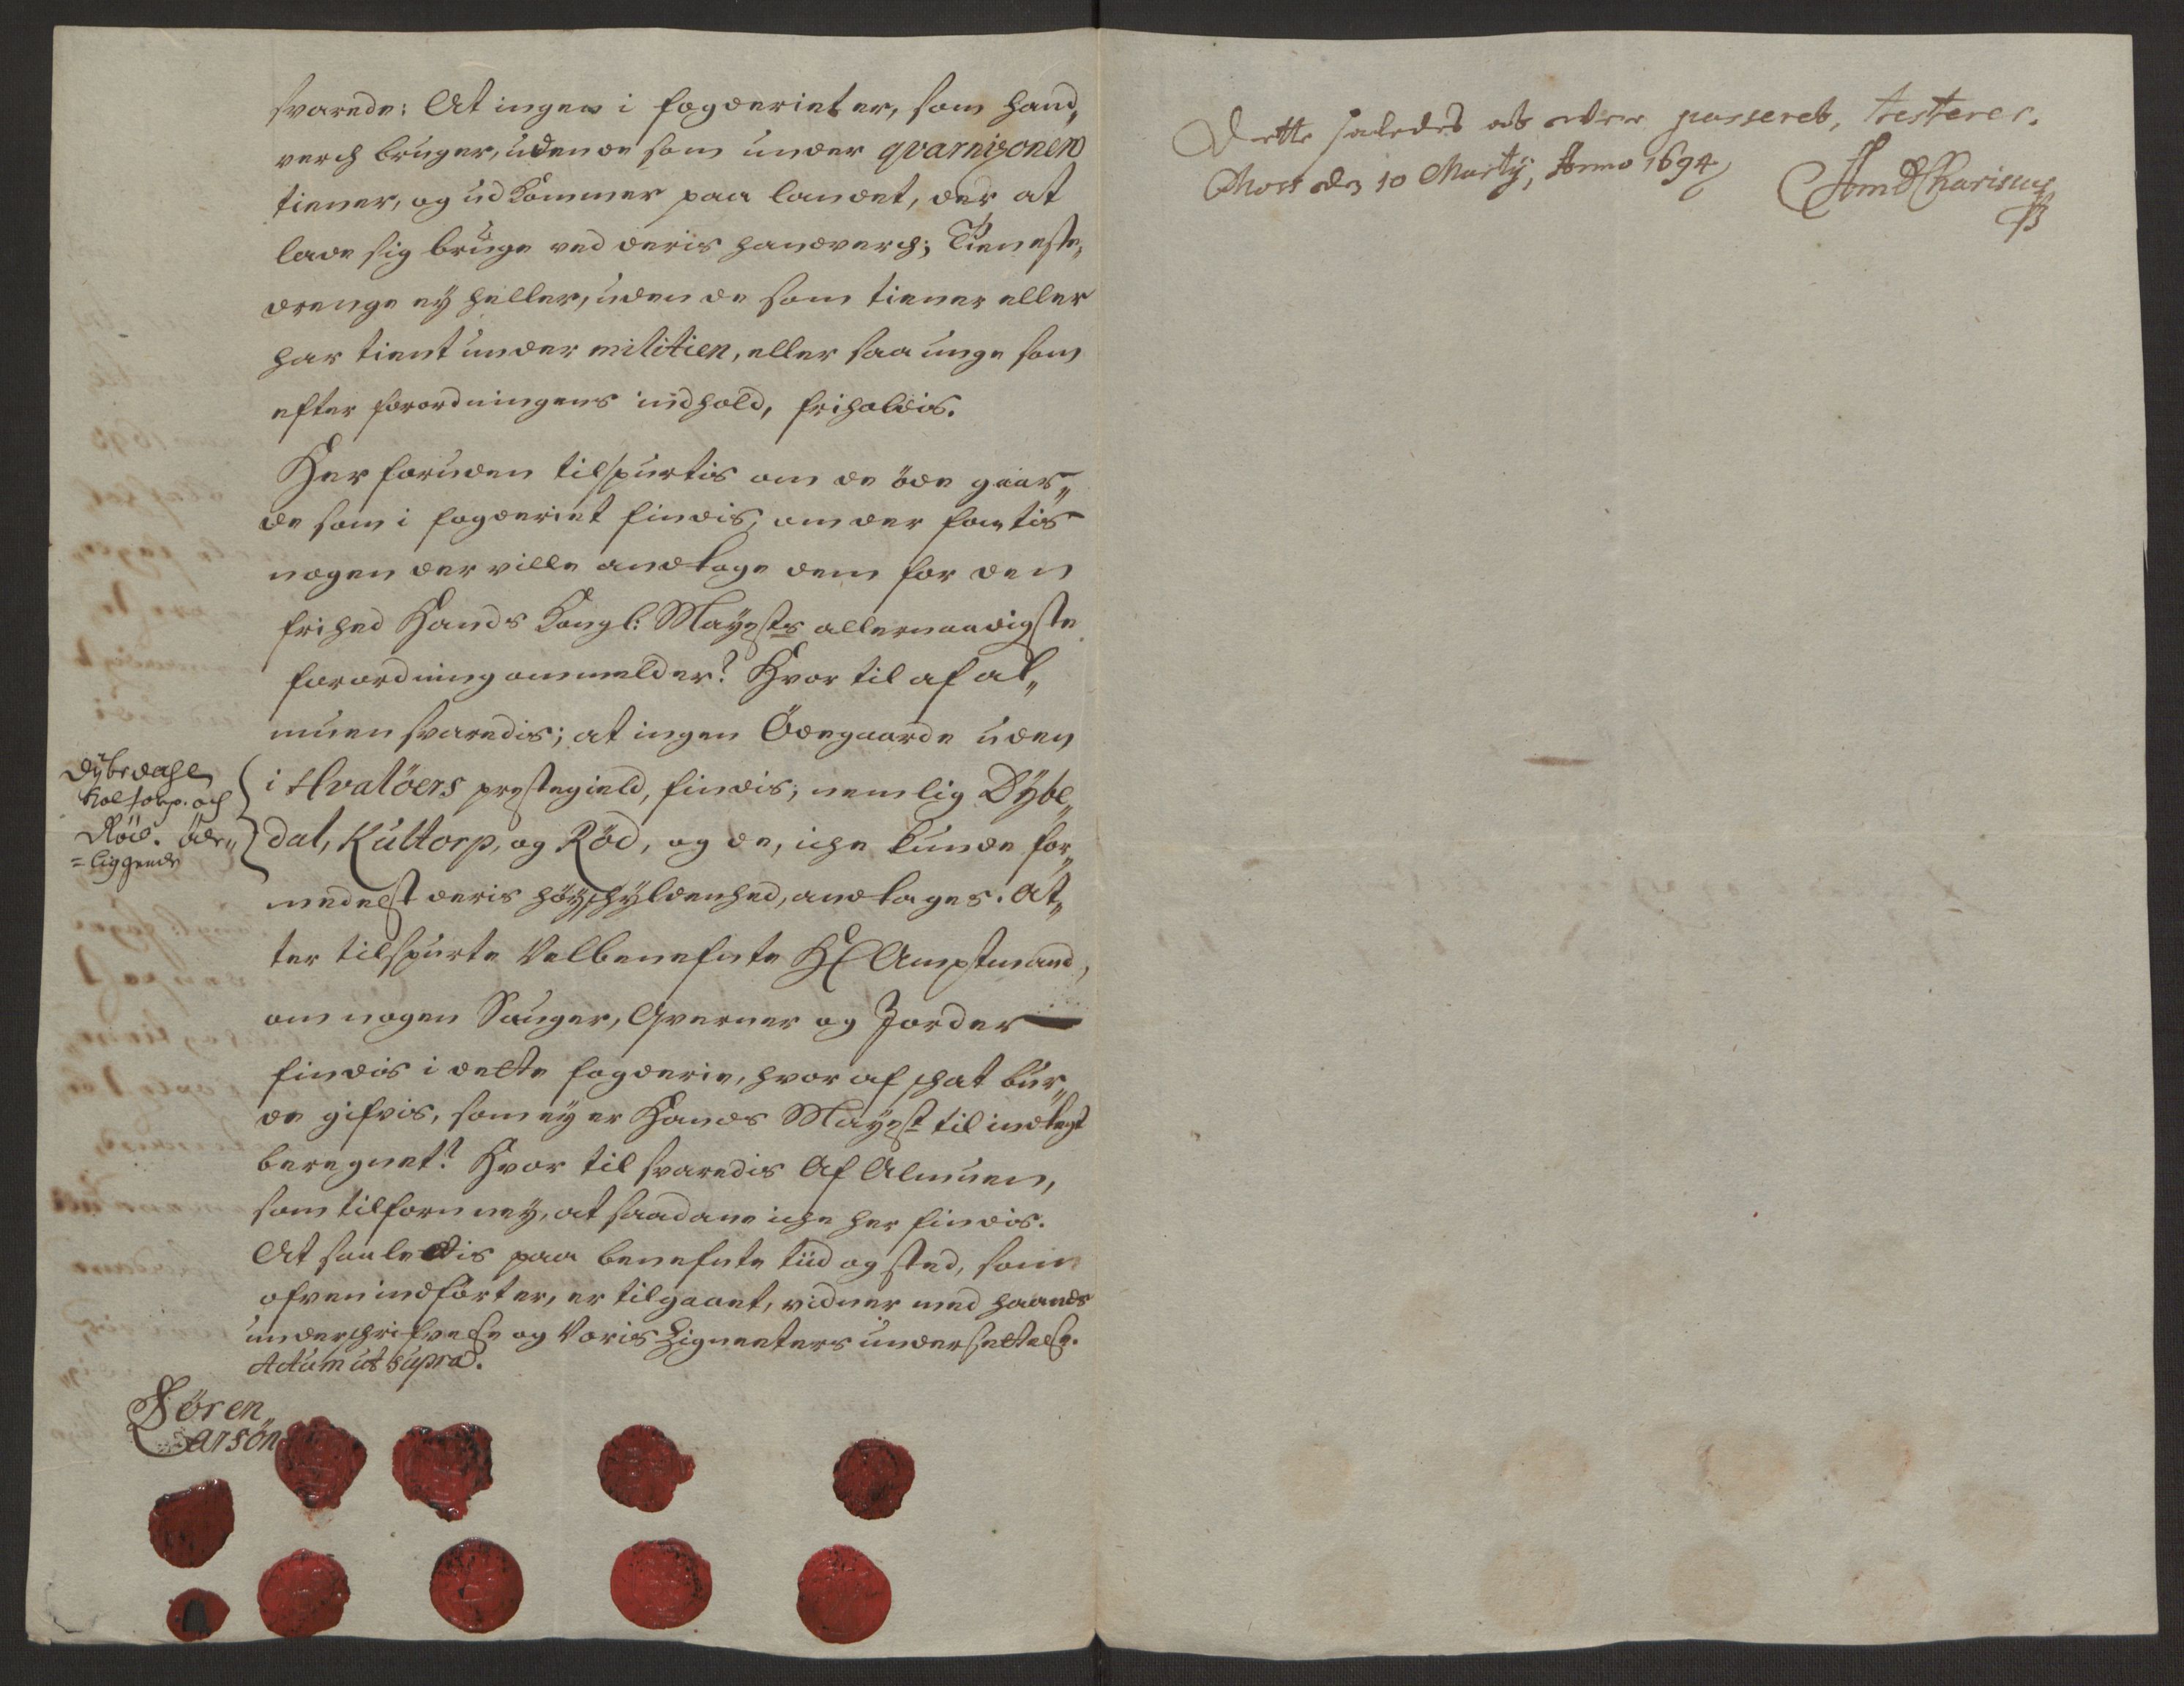 svarede: At ingen i fogderiet er, som hand„
verch bruger, uden de som under qvarnizonen
tiener, og ud kommer paa landet, der at
lade sig bruge ved deris handverch; Tieneste„
drenge ey heller, uden de som tiener eller
har tient under militien, eller saa unge som
efter forordningens indhold, friholdis.
Her foruden tilspurtis om de öde gaar„
de som i fogderiet findis, om der fantis
nogen der ville andtage dem for den
frihed Hands Kongl: Mayests allernaadigste
forordning ommelder? Hvor til af al„
muen svaredis; at ingen Ödegaarde uden
i Hvalöers prestegield, findis; nemlig Dybe„
dal, Kultorp, og Röd, og de, iche kunde for„
medelst deris höyschyldenhed, andtages. At„
ter tilspurte Velbenefnte Hr Amptmand,
om nogen Sauger, Qverner og Jorder
findis i dette fogderie, hvor af schat bur„
de gifvis, som ey er Hands Mayest til indtegt
beregnet? Hvor til svaredis Af Almuen,
som tilforn ney, at saadane iche her findis.
At saaledis paa benefnte tiid og sted, som
ofven indfört er, er tilgaaet, vidner med haands
underschrifvelse og Voris Zigneeters undersettelse.
Actum ut supra.
Dybedahl
Koltorp. och
Röd. öde„
=liggende
Sören
Larsön
Dette saaledes at være passeret, testerer.
Moss den 10 Marty, Anno 1694